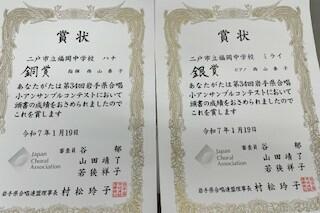 賞状
二戸市立福岡中学校 ハナ
銅賞
指揮 西山泰子
あなたがたは第34回岩手県合唱
小アンサンブルコンテストにおいて
頭書の成績をおさめられましたので
これを賞します
令和7年1月19日
Japan
Choral
Association
審査員 谷 郁
山田靖了
若狭祥子
岩手県合唱連盟理事長 村松玲子
賞状
二戸市立福岡中学校 ミライ
銀賞
ピアノ 西山泰子
あなたがたは第34回岩手県合唱
小アンサンブルコンテストにおいて
頭書の成績をおさめられましたので
これを賞します
令和7年1月19日
Japan
Choral
Association
審査員 谷 郁
山田靖了
若狭祥子
岩手県合唱連盟理事長 村松玲子